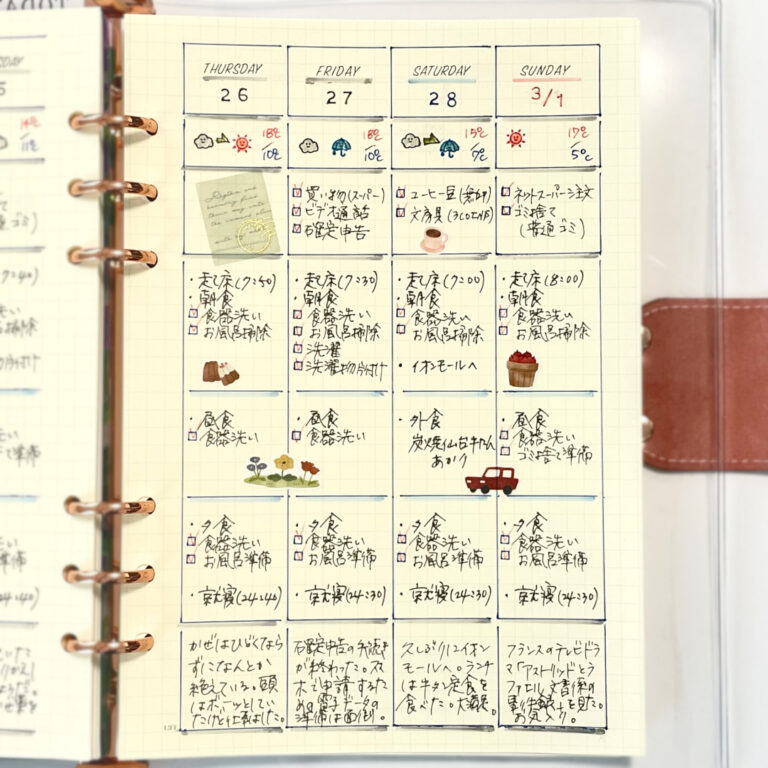 THURSDAY
26
FRIDAY
27
SATURDAY
28
SUNDAY
3/1
18℃
10℃
18℃
10℃
15℃
7℃
17℃
5℃
買い物(スーパー)
ビデオ通話
確定申告
コーヒー豆
文房具
ネットスーパー注文
ゴミ捨て
(普通ゴミ)
・起床(7:50)
・朝食
食器洗い
お風呂掃除
・起床(7:30)
・朝食
食器洗い
お風呂掃除
洗濯
洗濯物片付け
・起床(7:00)
・朝食
食器洗い
お風呂掃除
・イオンモールへ
・起床(8:00)
・朝食
食器洗い
お風呂掃除
・昼食
食器洗い
・昼食
食器洗い
・外食
炭焼仙台牛たん
・昼食
食器洗い
ゴミ捨て準備
・夕食
食器洗い
お風呂準備
・就寝(24:40)
・夕食
食器洗い
お風呂準備
・就寝(24:30)
・夕食
食器洗い
お風呂準備
・就寝(24:30)
・夕食
食器洗い
お風呂準備
・就寝(24:30)
かぜはひどくなら
ずになんとか
絶えている。頭
はボーッとしてい
たけど仕事はした。
確定申告の手続き
が終わった。スマ
ホで申請するた
めの電子データの
準備は面倒。
久しぶりにイオン
モールへ。ランチ
は牛タン定食を
食べた。大満足。
フランスのテレビドラ
マ「アストリッドとラ
ファエル 文書係の
事件録」を見た。
お気に入り。